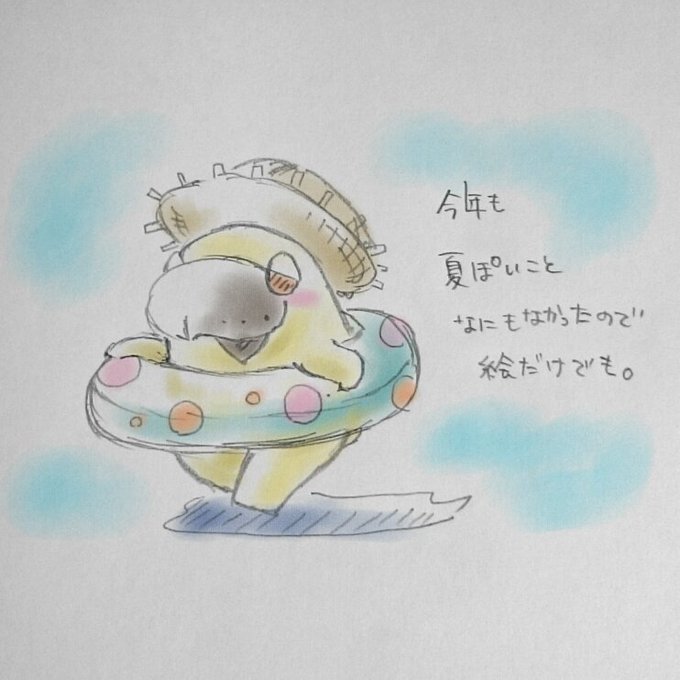 今年も
夏ぽいこと
なにもなかったので
絵だけでも。